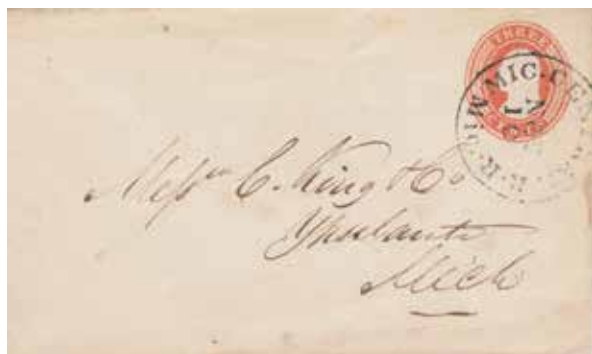 THREE
MIC. CEN. R.R. MIC
Messrs C. King & Co
Ypsilanti
Mich